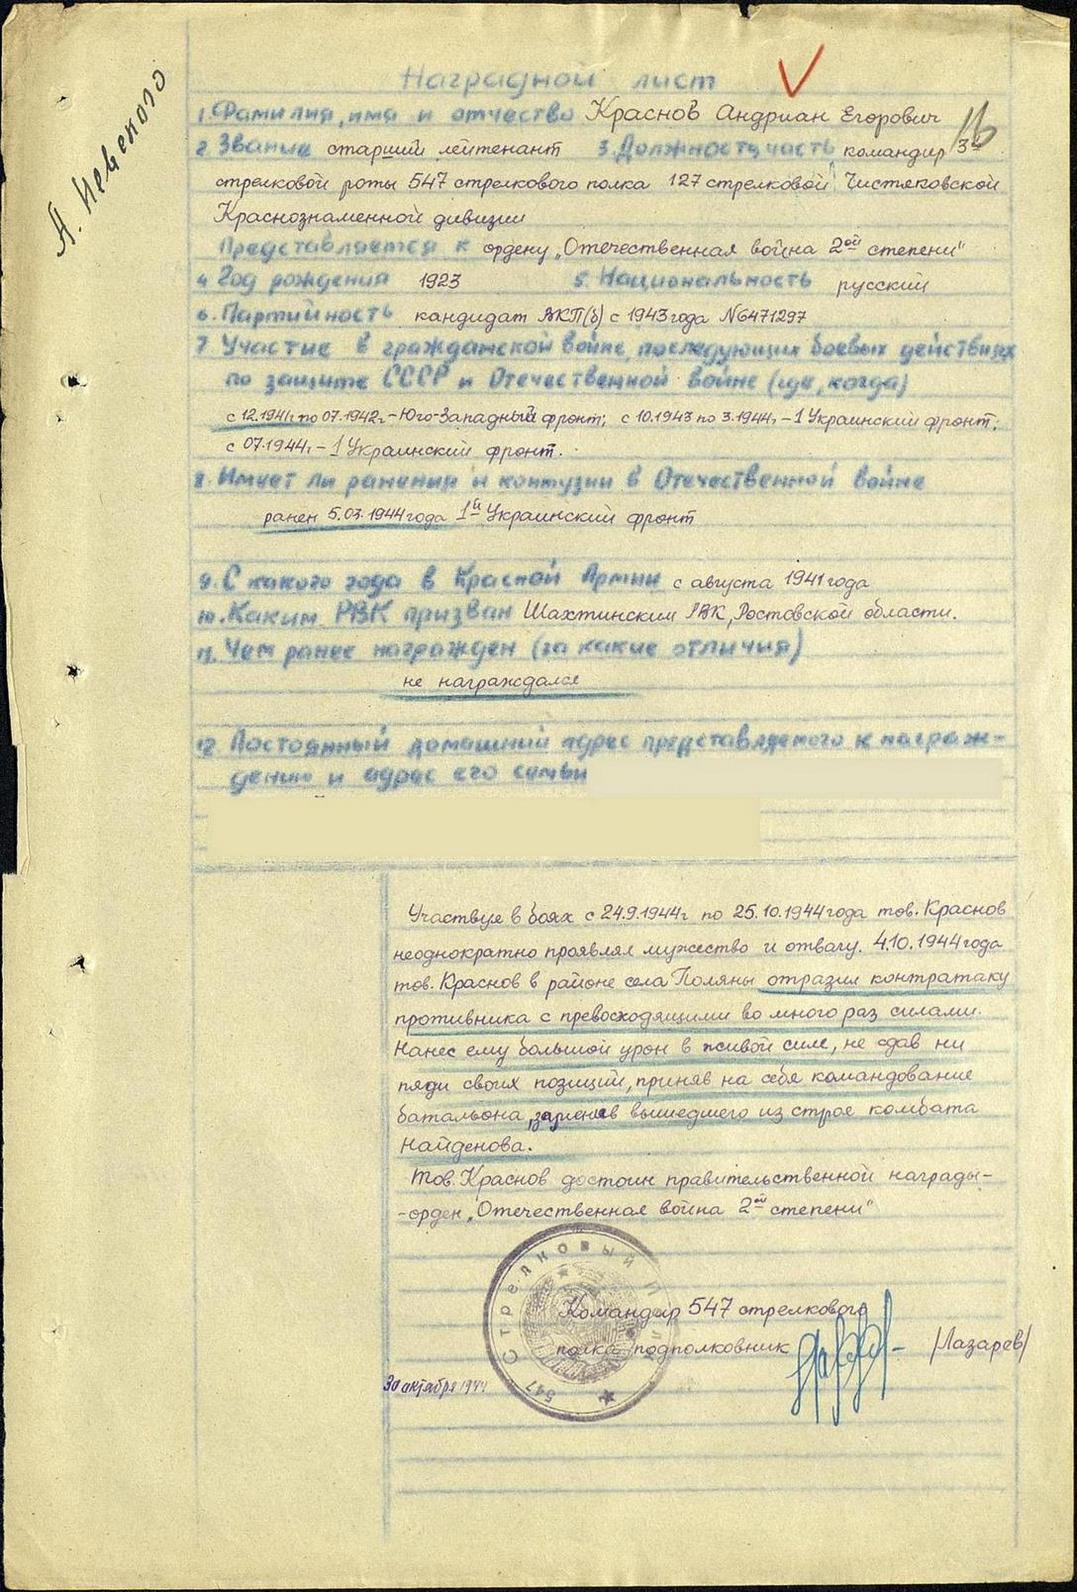 А. Невского
Наградной лист
1. Фамилия, имя и отчество Краснов Андриан Егорович
16
2. Звание старший лейтенант 3. Должность, часть командир 3й
стрелковой роты 547 стрелкового полка 127 стрелковой Чистяковской
Краснознаменной дивизии
Представляется к ордену „Отечественная война 2ой степени"
4 Год рождения 1923 5. Национальность русский
6. Партийность кандидат ВКП(б) с 1943 года №6471297
7 Участие в гражданской войне, последующих боевых действиях
по защите СССР и Отечественной войне (где, когда)
с 12.1941г. по 07.1942г.-Юго-Западный фронт; с 10.1943 по 3.1944г.-1 Украинский фронт;
с 07.1944г.-1 Украинский фронт.
8. Имеет ли ранения и контузии в Отечественной войне
ранен 5.03.1944 года 1й Украинский фронт
9. С какого года в Красной Армии с августа 1941 года
10. Каким РВК призван Шахтинским РВК, Ростовской области.
11. Чем ранее награжден (за какие отличия)
не награждался
12 Постоянный домашний адрес представляемого к награж-
дению и адрес его семьи
Участвуе в боях с 24.9.1944г по 25.10.1944 года тов. Краснов
неоднократно проявлял мужество и отвагу. 4.10.1944 года
тов. Краснов в районе села Поляны отразил контратаку
противника с превосходящими во много раз силами.
Нанес ему большой урон в живой силе, не сдав ни
пяди своих позиций, приняв на себя командование
батальона, заменив вышедшего из строе комбата
Найденова.
Тов. Краснов достоин правительственной награды-
-орден „Отечественная война 2ой степени"
547 Стрелковый Полк
Командир 547 стрелкового
полка подполковник /Лазарев/
30 октября 1944